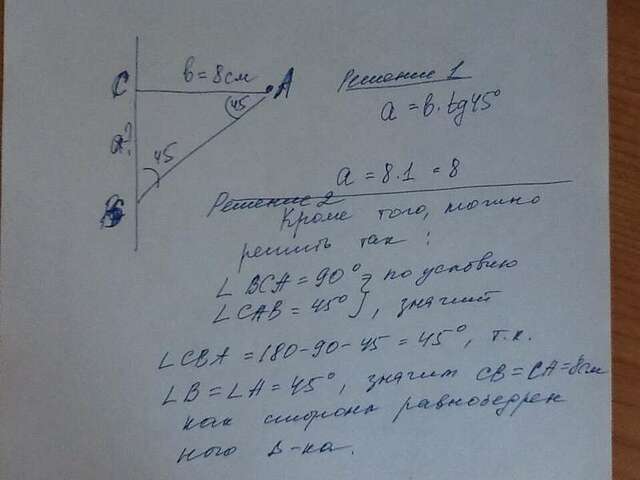 C b=8см A
45
a?
45
B
Решение 1
a = b·tg45°
a = 8·1 = 8
Решение 2
Кроме того, можно
решить так:
∠ BCA = 90° } по условию
∠ CAB = 45° }, значит
∠CBA = 180-90-45 = 45°, т.к.
∠B = ∠A = 45°, значит CB = CA = 8см
как стороны равнобедрен
ного Δ-ка.